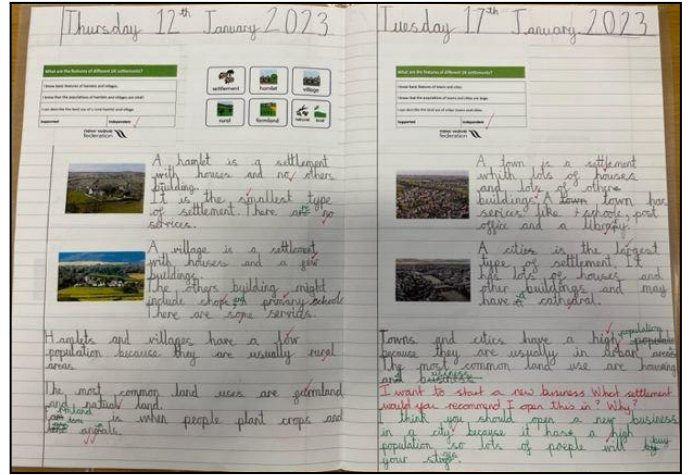 Thursday 12th January 2023
What are the features of different UK settlements?
I know basic features of hamlets and villages.
I know that the populations of hamlets and villages are small.
I can describe the land use of a rural hamlet and village.
Supported Independent
new wave
federation
settlement hamlet village
rural farmland natural land
A hamlet is a settlement
with houses and no others
building.
It is the smallest type
of settlement. There are no
services.
A village is a settlement
with houses and a few
buildings.
The others building might
include shops and primary schools
There are some services.
Hamlets and villages have a low
population because they are usually rural
areas.
The most common land uses are farmland
and natural land.
is when people plant crops and
animals.
Tuesday 17th January 2023
What are the features of different UK settlements?
I know basic features of towns and cities.
I know that the populations of towns and cities are large.
I can describe the land use of urban towns and cities.
Supported Independent
new wave
federation
A town is a settlement
whith lots of houses
and lots of others
buildings. A town town has
serices like schools, post
office and a library.
A cities is the largest
type of settlement. It
has lots of houses and
other buildings and may
have a cathedral.
Towns and cities have a high population
because they are usually in urban areas
The most common land use are housing
and business
I want to start a new business What settlement
would you recommend I open this in? Why?
I think you should open a new business
in a city because it has a high
population so lots of people will buy
your